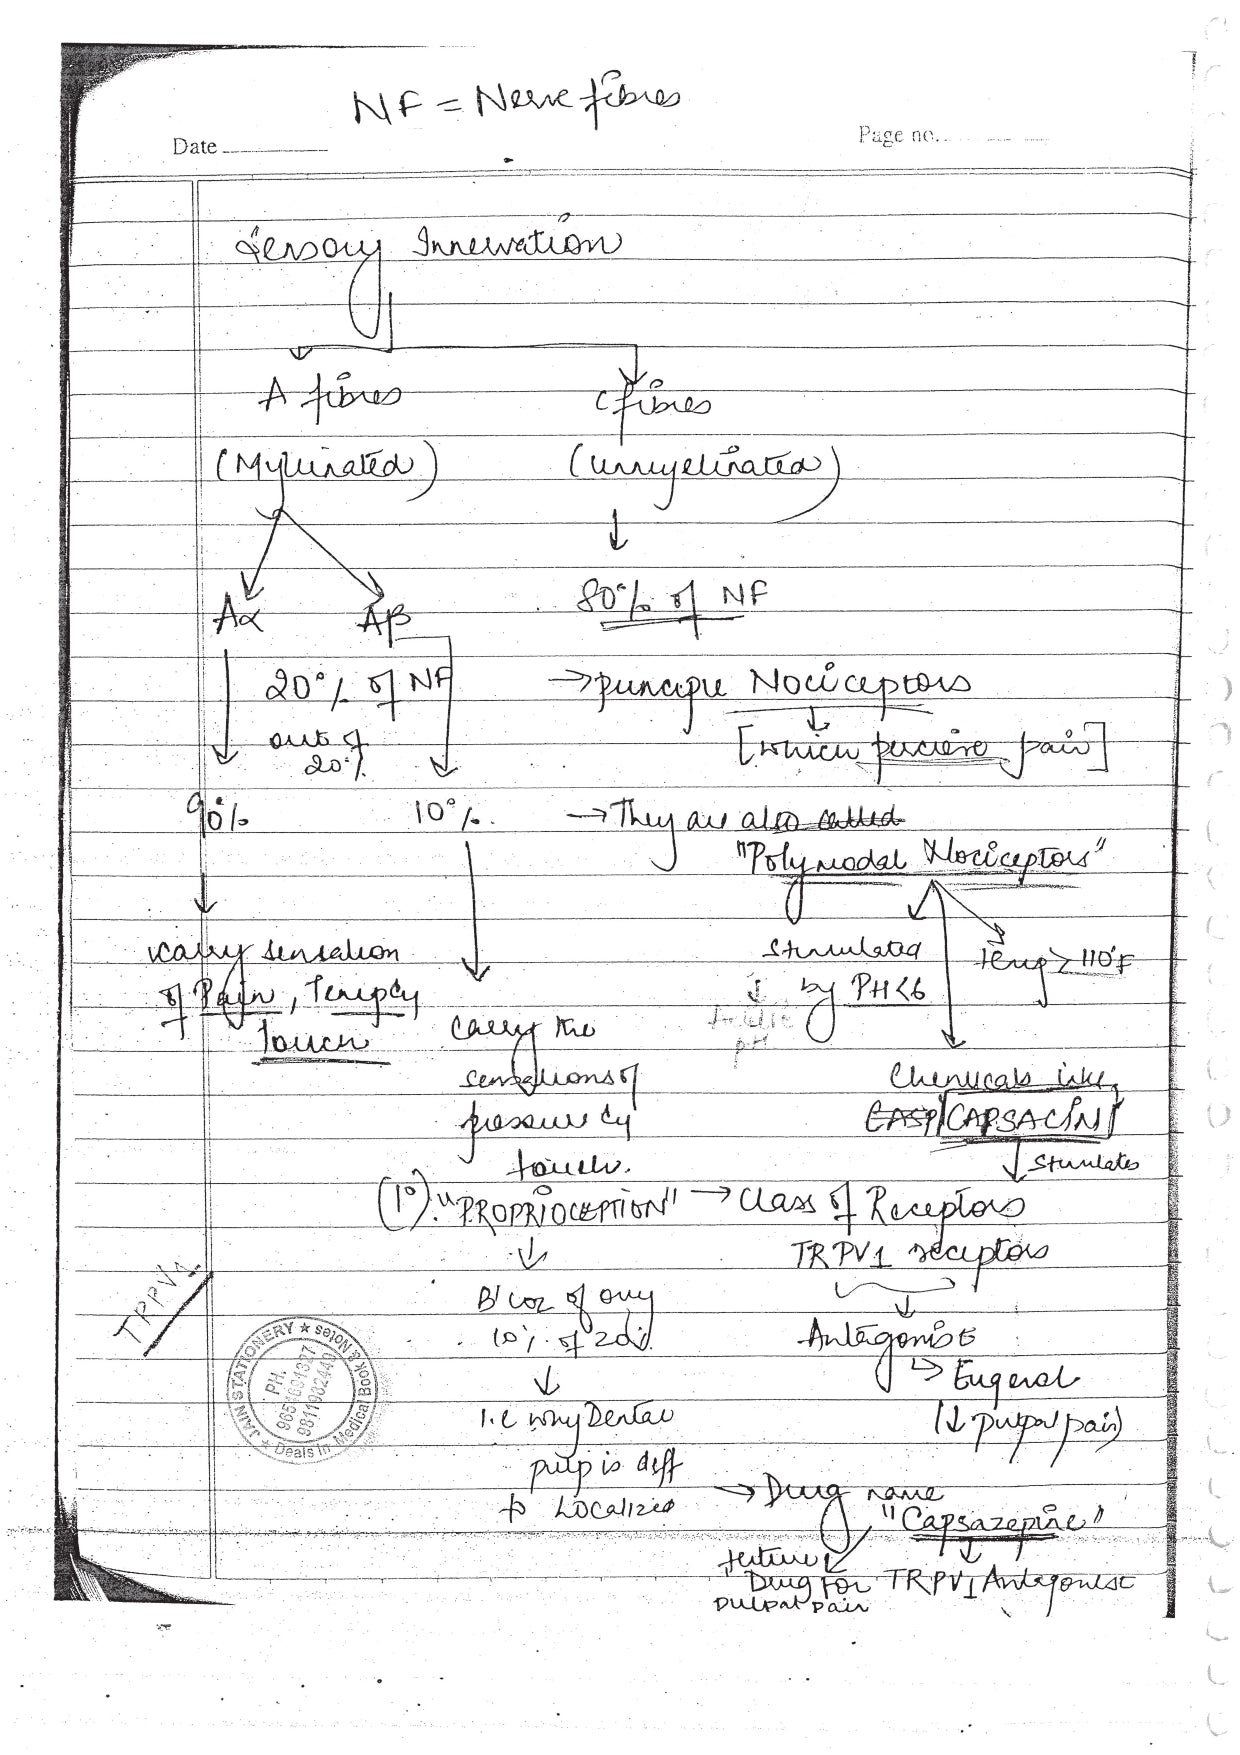 NF = Nerve fibres
Date
Page no.
Sensory Innervation
A fibres
C fibres
(Mylinated)
(unmyelinated)
Aα
Aβ
80% of NF
20% of NF
out of
20%
→ principle Nociceptors
[which percieve pain]
90%
10%.
→ They are also called
"Polymodal Nociceptors"
carry sensation
of Pain, Temp &
Touch
Stimulated
by PH<6
pH
Temp > 110°F
carry the
sensations of
pressure &
touch.
Chemicals like
CASP CAPSACIN
Stimulates
(1°). "PROPRIOCEPTION"
→ Class of Receptors
TRPV1 receptors
B'coz of only
10% of 20%
Antagonist
↳ Eugenol
(↓ pulpal pain)
i.e why Dental
pulp is diff
to Localized
TRPV1
JAIN STATIONERY ★ Book & Notes
PH.
Deals in Medical
→ Drug name
"Capsazepine"
future
Drug for
pulpal pain
TRPV1 Antagonist